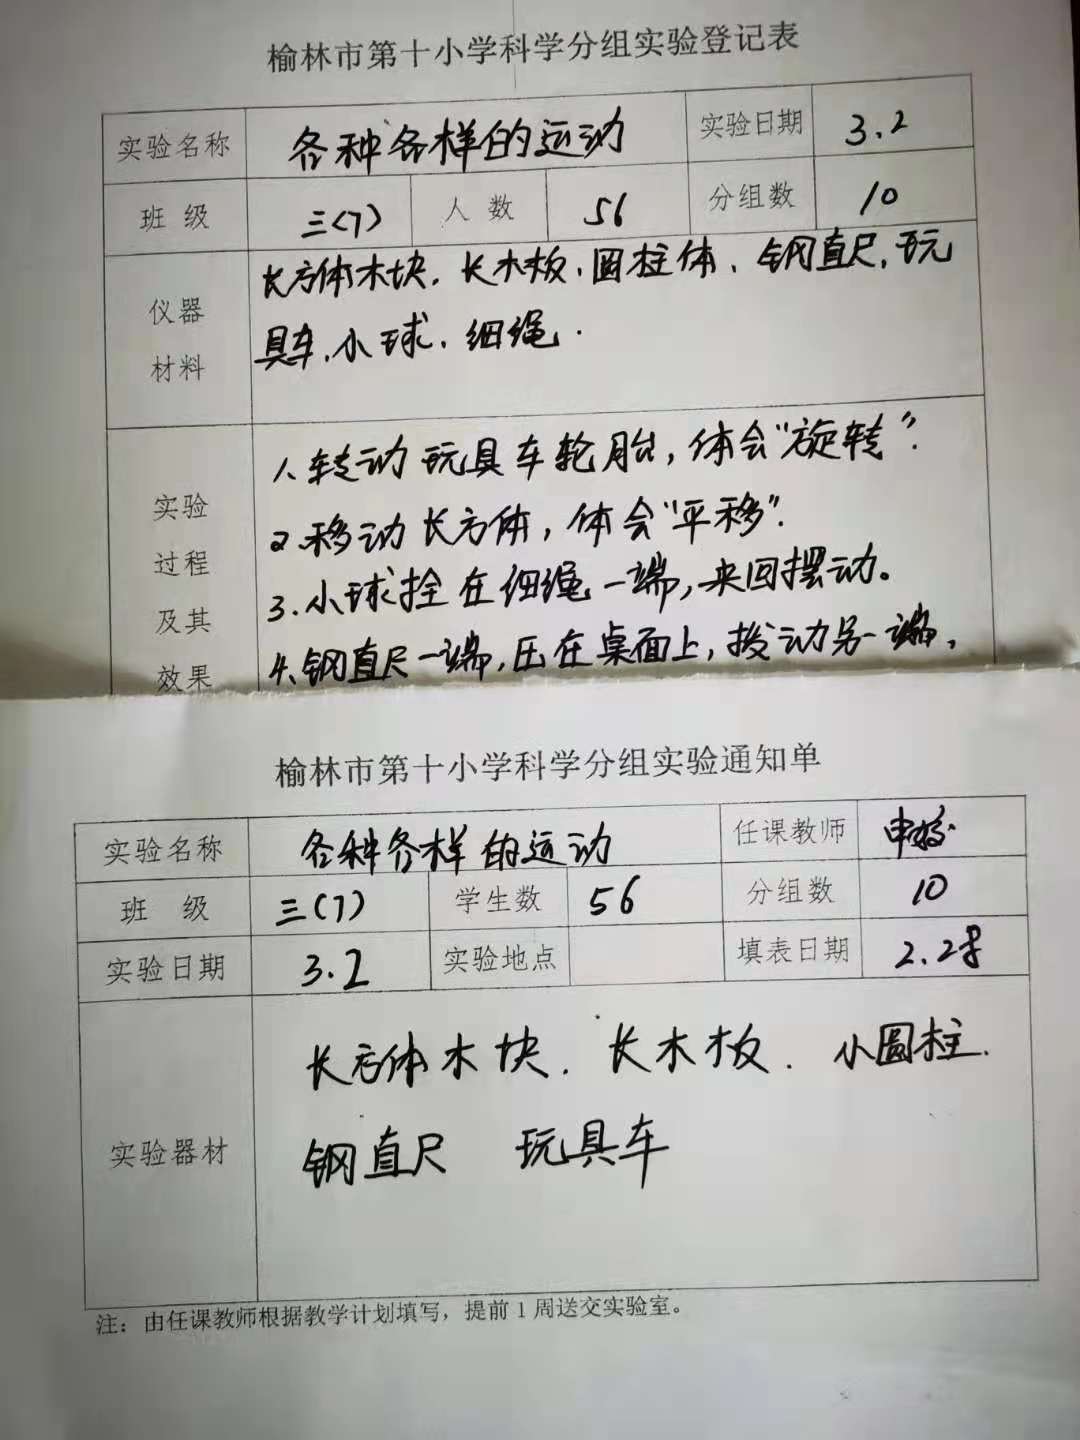 榆林市第十小学科学分组实验登记表
实验名称 各种各样的运动 实验日期 3.2
班 级 三(7) 人 数 56 分组数 10
仪器
材料
长方体木块、长木板、圆柱体、钢直尺、玩
具车、小球、细绳.
实验
过程
及其
效果
1、转动玩具车轮胎,体会“旋转”.
2、移动长方体,体会“平移”.
3.小球拴在细绳一端,来回摆动。
4、钢直尺一端,压在桌面上,拨动另一端,
榆林市第十小学科学分组实验通知单
实验名称 各种各样的运动 任课教师 申
班 级 三(7) 学生数 56 分组数 10
实验日期 3.2 实验地点 填表日期 2.28
实验器材
长方体木块. 长木板. 小圆柱.
钢直尺 玩具车
注:由任课教师根据教学计划填写,提前1周送交实验室。